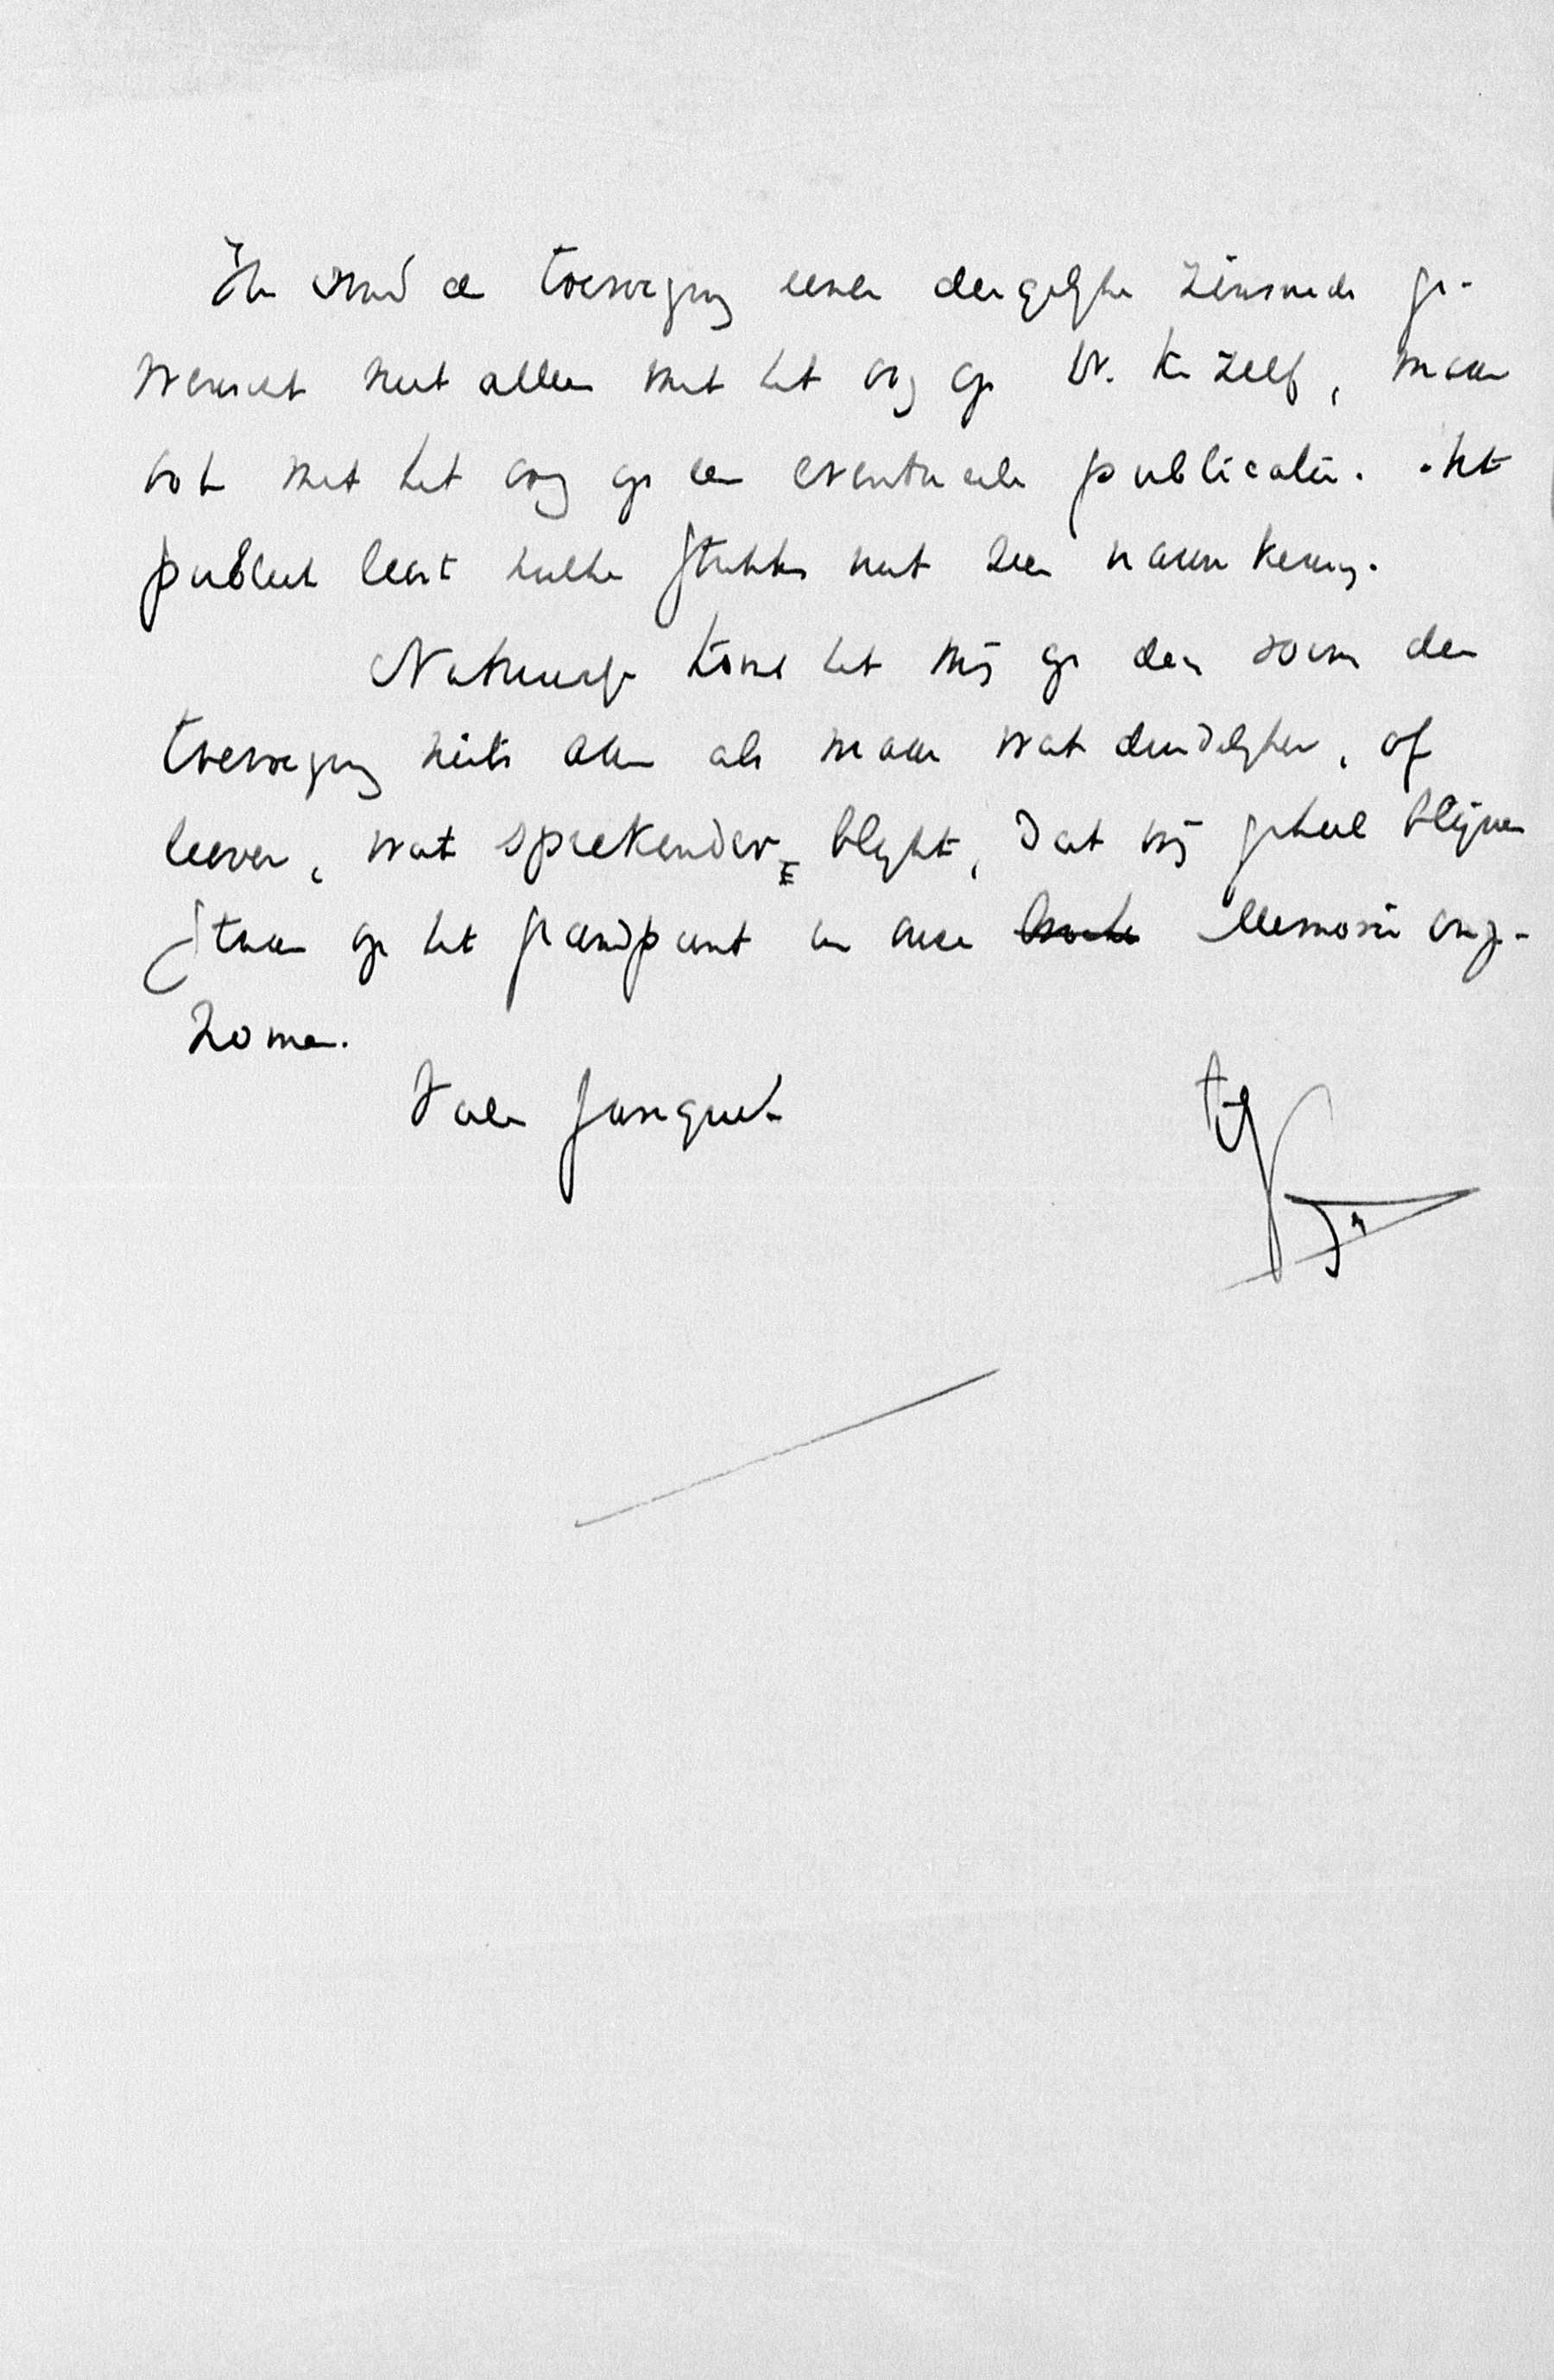 Ik vind de toevoeging eener dergelijke zinsnede ge-
wenscht niet alleen met het oog op W. K. zelf, maar
ook met het oog op een eventueele publicatie. Het
publiek leest zulke stukken niet zeer nauwkeurig.
Natuurlijk komt het mij op den vorm der
toevoeging niets aan als maar wat duidelijker, of
liever, wat sprekender blijkt, dat wij geheel blijven
staan op het standpunt in onze Memorie inge-
nomen.